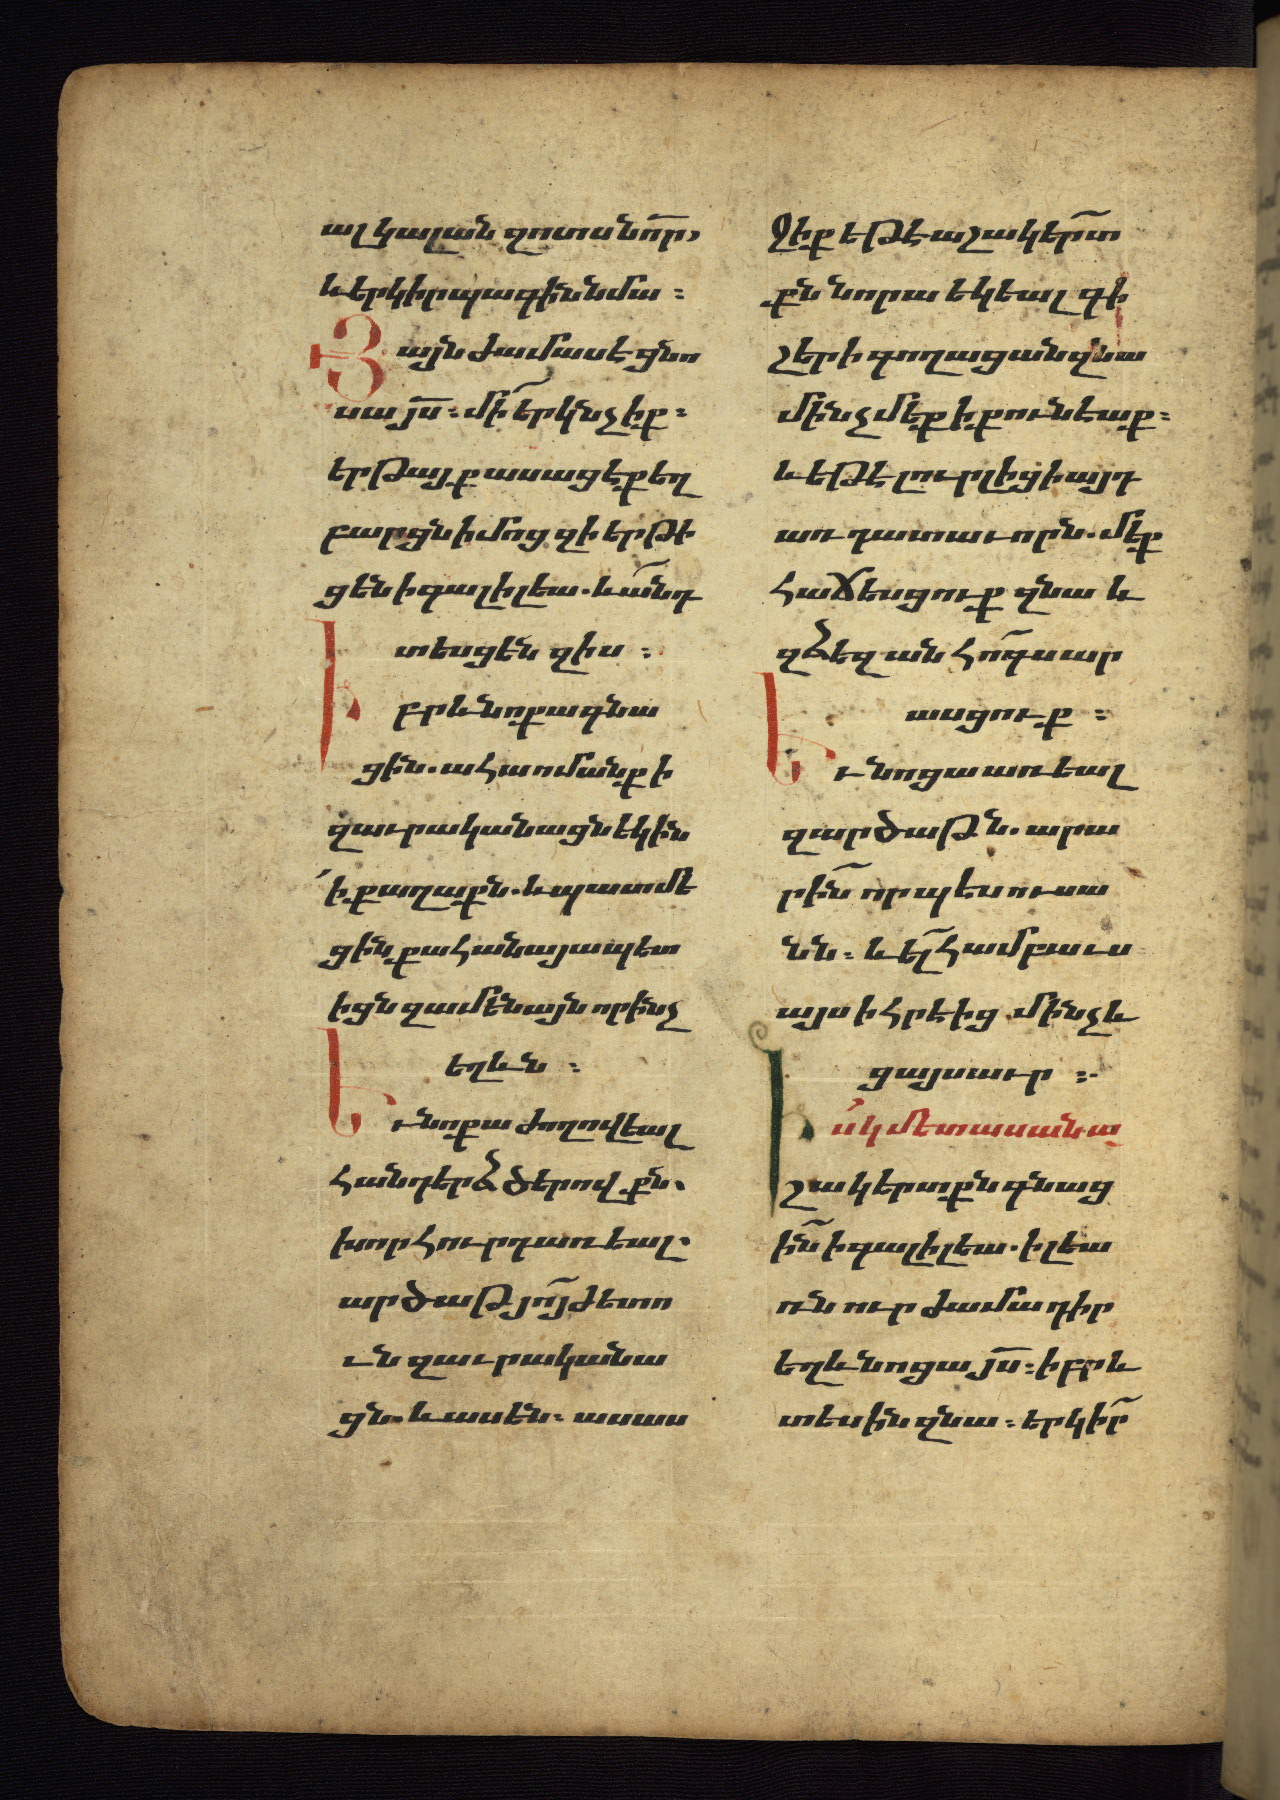 ալ կալան զոտս նո̄ր՛
և երկիրպագին նմա ։
Յայնժամ ասէ ցնո
սա յս̄ ։ մի̄ երկնչիք ։
երթայք ասացէք եղ
բարցն իմոց զի երթի
ցեն ի գալիլեա . և ա̄նդ
տեսցեն զիս ։
Իբրև նոքա գնա
ցին . ահա ոմանք ի
զաւրականացն եկին
ի քաղաքն . և պատմե
ցին քահանայապետ
իցն զամենայն որ ինչ
եղևն ։
Եւ նոքա ժողովեալ
հանդերձ ծերովքն .
խորհուրդ առեալ .
արծաթ յո̄յժ ետո
ւն զաւրականա
ցն . և ասեն . ասաս
ջիք եթե աշակե̄րտ
քն նորա եկեալ գի
շերի գողացան զնա
մինչ մեք ի քուն եաք ։
և եթե լուր լիցի այդ
առ դատաւորն . մեք
հաճեսցուք զնա և
զձեզ անհո̄գս ար
ասցուք ։
Եւ նոցա առեալ
զարծաթն . արա
րի̄ն որպես ուսա
նն ։ և ել̄ համբաւս
այս ի հրէից մինչև
ցայսաւր ։
Իսկ մետասան ա
շակերտքն գնաց
ի̄ն ի գալիլեա . ի լեա
ռն ուր ժամադիր
եղև նոցա յս̄ ։ իբրև
տեսին զնա ։ երկի̄ր